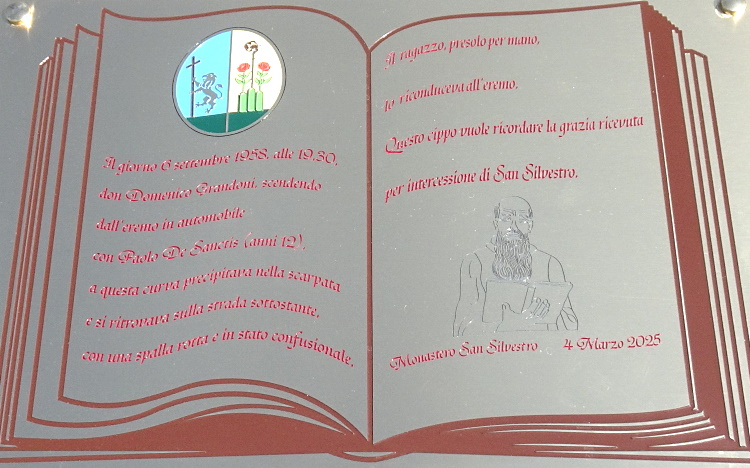 Il giorno 6 settembre 1958, alle 19,30,
don Domenico Grandoni, scendendo
dall'eremo in automobile
con Paolo De Sanctis (anni 12),
a questa curva precipitava nella scarpata
e si ritrovava sulla strada sottostante,
con una spalla rotta e in stato confusionale.
Il ragazzo, presolo per mano,
lo riconduceva all'eremo.
Questo cippo vuole ricordare la grazia ricevuta
per intercessione di San Silvestro.
Monastero San Silvestro 4 Marzo 2025